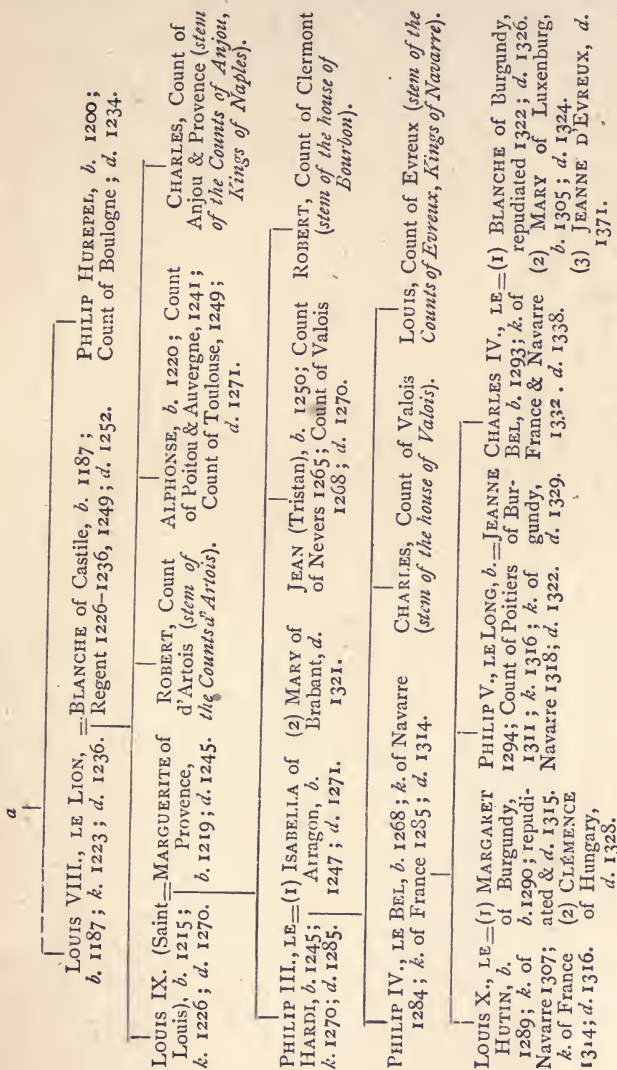 a
LOUIS VIII., LE LION,
b. 1187; k. 1223; d. 1236.
=BLANCHE of Castile, b. 1187;
Regent 1226-1236, 1249; d. 1252.
PHILIP HUREPEL, b. 1200;
Count of Boulogne; d. 1234.
LOUIS IX. (Saint
Louis), b. 1215;
k. 1226; d. 1270.
=MARGUERITE of
Provence,
b. 1219; d. 1245.
ROBERT, Count
d'Artois (stem of
the Counts d'Artois).
ALPHONSE, b. 1220; Count
of Poitou & Auvergne, 1241;
Count of Toulouse, 1249;
d. 1271.
CHARLES, Count of
Anjou & Provence (stem
of the Counts of Anjou,
Kings of Naples).
PHILIP III., LE
HARDI, b. 1245;
k. 1270; d. 1285.
=(1) ISABELLA of
Arragon, b.
1247; d. 1271.
(2) MARY of
Brabant, d.
1321.
JEAN (Tristan), b. 1250; Count
of Nevers 1265; Count of Valois
1268; d. 1270.
ROBERT, Count of Clermont
(stem of the house of
Bourbon).
PHILIP IV., LE BEL, b. 1268; k. of Navarre
1284; k. of France 1285; d. 1314.
CHARLES, Count of Valois
(stem of the house of Valois).
LOUIS, Count of Evreux (stem of the
Counts of Evreux, Kings of Navarre).
LOUIS X., LE
HUTIN, b.
1289; k. of
Navarre 1307;
k. of France
1314; d. 1316.
=(1) MARGARET
of Burgundy,
b. 1290; repudi-
ated & d. 1315.
(2) CLÉMENCE
of Hungary,
d. 1328.
PHILIP V., LE LONG, b.
1294; Count of Poitiers
1311; k. 1316; k. of
Navarre 1318; d. 1322.
=JEANNE
of Bur-
gundy,
d. 1329.
CHARLES IV., LE
BEL, b. 1293; k. of
France & Navarre
1332. d. 1338.
=(1) BLANCHE of Burgundy,
repudiated 1322; d. 1326.
(2) MARY of Luxenburg,
b. 1305; d. 1324.
(3) JEANNE D'EVREUX, d.
1371.